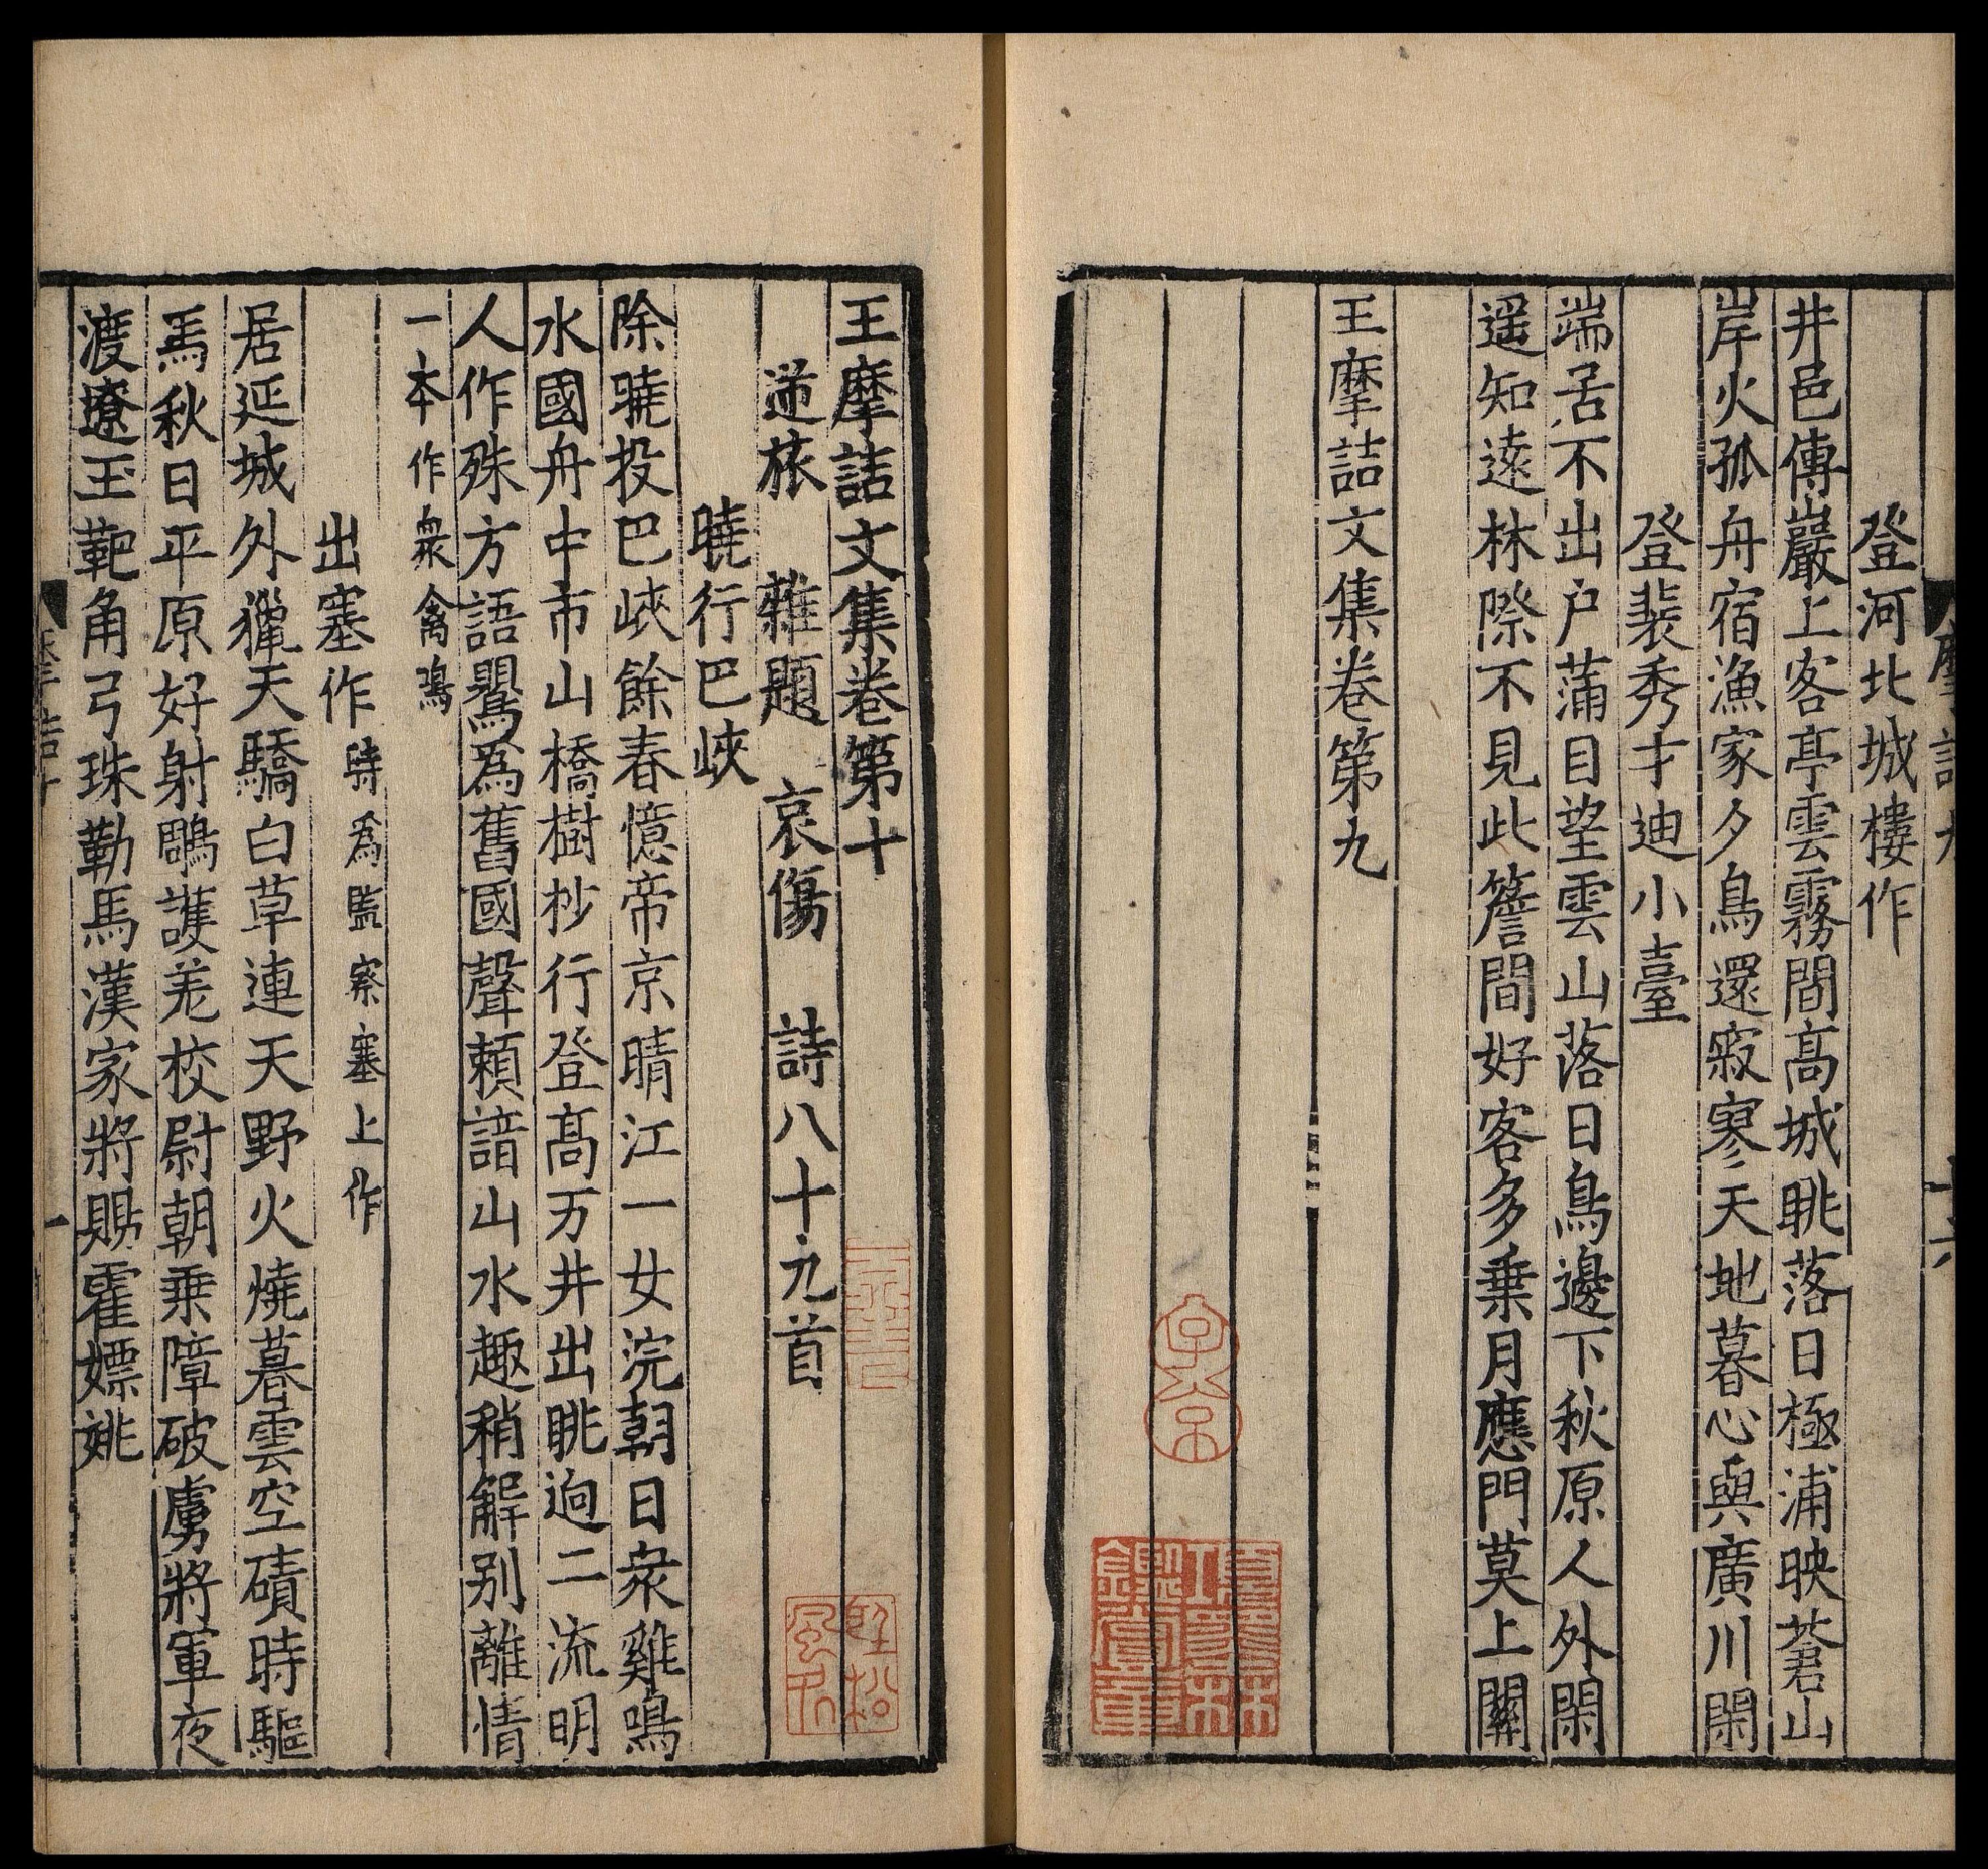 登河北城樓作
井邑傳巖上客亭雲霧間髙城眺落日極浦映蒼山
岸火孤舟宿漁家夕鳥還寂寥天地暮心與廣川閑
登裴秀才迪小臺
端居不出户蒲目望雲山落日鳥邊下秋原人外閑
遥知逺林際不見此簷間好客多乗月應門莫上關
王摩詰文集卷第九
王摩詰文集卷第十
逆旅 雜題 哀傷 詩八十九首
曉行巴峽
除曉投巴峽餘春憶帝京晴江一女浣朝日衆雞鳴
水國舟中市山橋樹杪行登髙万井出眺迥二流明
人作殊方語鸎為舊國聲頼諳山水趣稍解别離情
一本作衆禽鳴
出塞作時為監察塞上作
居延城外獵天驕白草連天野火燒暮雲空磧時驅
馬秋日平原好射鵰護羌校尉朝乗障破虜將軍夜
渡遼玉靶角弓珠勒馬漢家將賜霍嫖姚
一
子京
項墨林鑑賞章